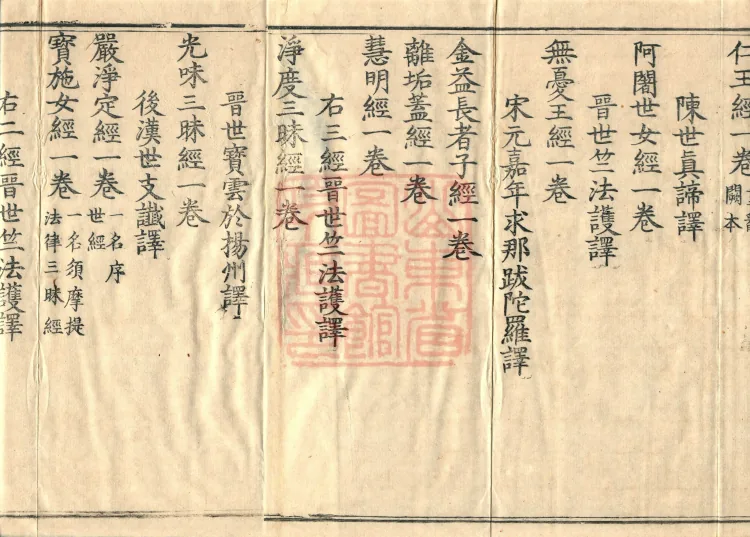 仁王經一卷
闕本
陳世真諦譯
阿闍世女經一卷
晉世竺法護譯
無憂王經一卷
宋元嘉年求那跋陀羅譯
金益長者子經一卷
離垢蓋經一卷
慧明經一卷
右三經晉世竺法護譯
淨度三昧經一卷
晉世寶雲於揚州譯
光味三昧經一卷
後漢世支讖譯
嚴淨定經一卷 一名序
世經
寶施女經一卷 一名須摩提
法律三昧經
右二經晉世竺法護譯
山東省
圖書館